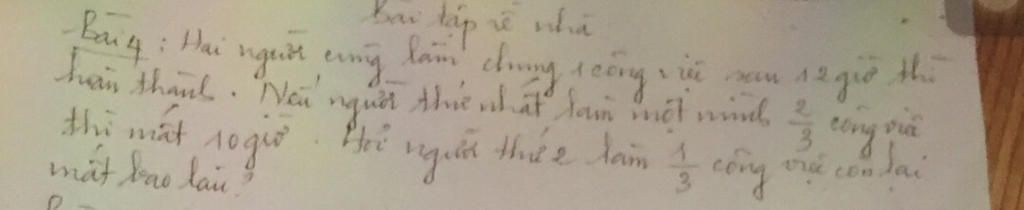 Bài tập về nhà
Bài 4: Hai người cùng làm chung 1 công việc sau 12 giờ thì
hoàn thành. Nếu người thứ nhất làm một mình 2/3 công việc
thì mất 10 giờ. Hỏi người thứ 2 làm 1/3 công việc còn lại
mất bao lâu?